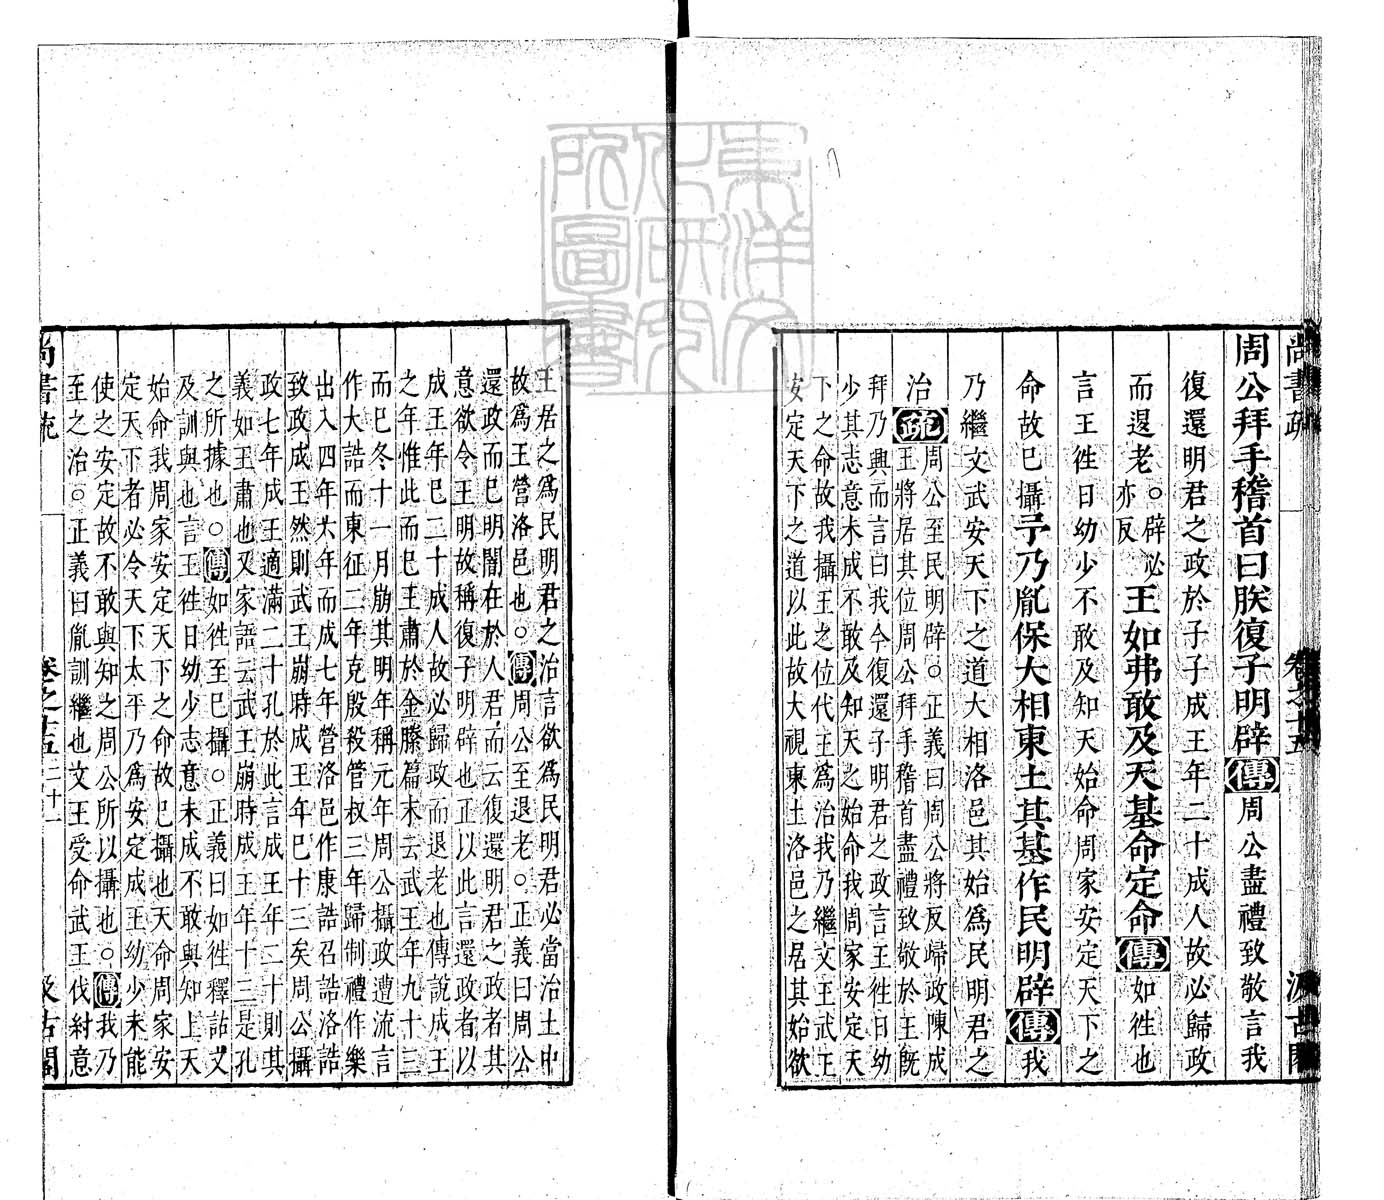 尚書疏
卷之十五
汲古閣
周公拜手稽首曰朕復子明辟傳周公盡禮致敬言我
復還明君之政於子子成王年二十成人故必歸政
而退老。辟必亦反王如弗敢及天基命定命傳如徃也
言王徃日幼少不敢及知天始命周家安定天下之
命故已攝予乃胤保大相東土其基作民明辟傳我
乃繼文武安天下之道大相洛邑其始爲民明君之
治疏周公至民明辟。正義曰周公將反歸政陳成
王將居其位周公拜手稽首盡禮致敬於王旣
拜乃興而言曰我今復還子明君之政言王徃日幼
少其志意未成不敢及知天之始命我周家安定天
下之命故我攝王之位代王爲治我乃繼文王武王
安定天下之道以此故大視東土洛邑之居其始欲
王居之爲民明君之治言欲爲民明君必當治土中
故爲王營洛邑也。傳周公至退老。正義曰周公
還政而已明闇在於人君而云復還明君之政者其
意欲令王明故稱復子明辟也正以此言還政者以
成王年已二十成人故必歸政而退老也傳說成王
之年惟此而已王肅於金縢篇末云武王年九十三
而已冬十一月崩其明年稱元年周公攝政遭流言
作大誥而東征二年克殷殺管叔三年歸制禮作樂
出入四年六年而成七年營洛邑作康誥召誥洛誥
致政成王然則武王崩時成王年已十三矣周公攝
政七年成王適滿二十孔於此言成王年二十則其
義如王肅也又家語云武王崩時成王年十三是孔
之所據也。傳如徃至已攝。正義曰如徃釋詁文
及訓與也言王徃日幼少志意未成不敢與知上天
始命我周家安定天下之命故已攝也天命周家安
定天下者必令天下太平乃爲安定成王幼少未能
使之安定故不敢與知之周公所以攝也。傳我乃
至之治。正義曰胤訓繼也文王受命武王伐紂意
尚書疏
卷之十五
二十一
汲古閣
東洋文化研究所圖書